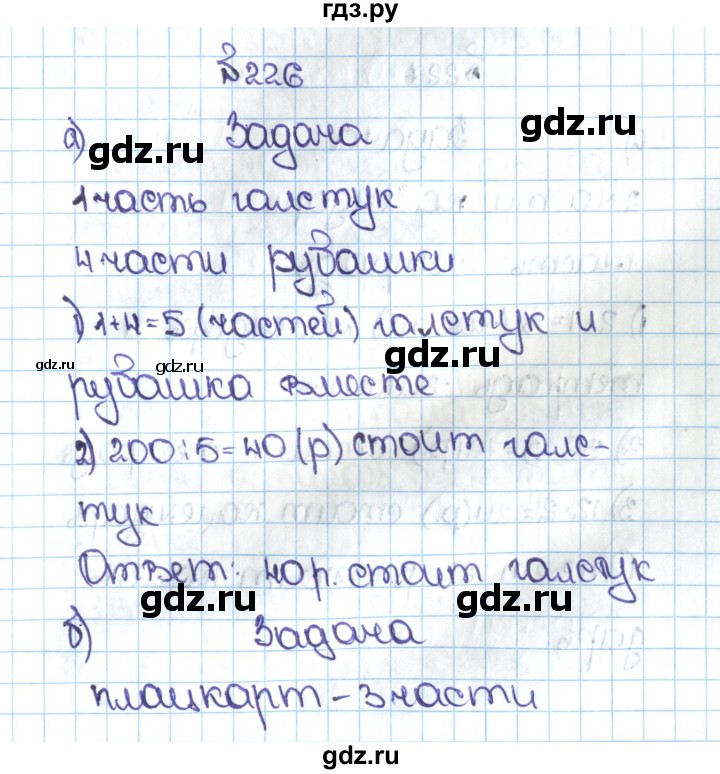 гдз.ру
№226
а) Задача
gdz.ru
gdz.ru
1 часть галстук
4 части рубашки
1) 1+4=5 (частей) галстук и
gdz.ru
gdz.ru
gdz.ru
рубашка вместе
2) 200:5=40 (р) стоит галс-
тук
Ответ: 40 р. стоит галстук
gdz.ru
gdz.ru
б) Задача
плацкарт - 3 части
gdz.ru